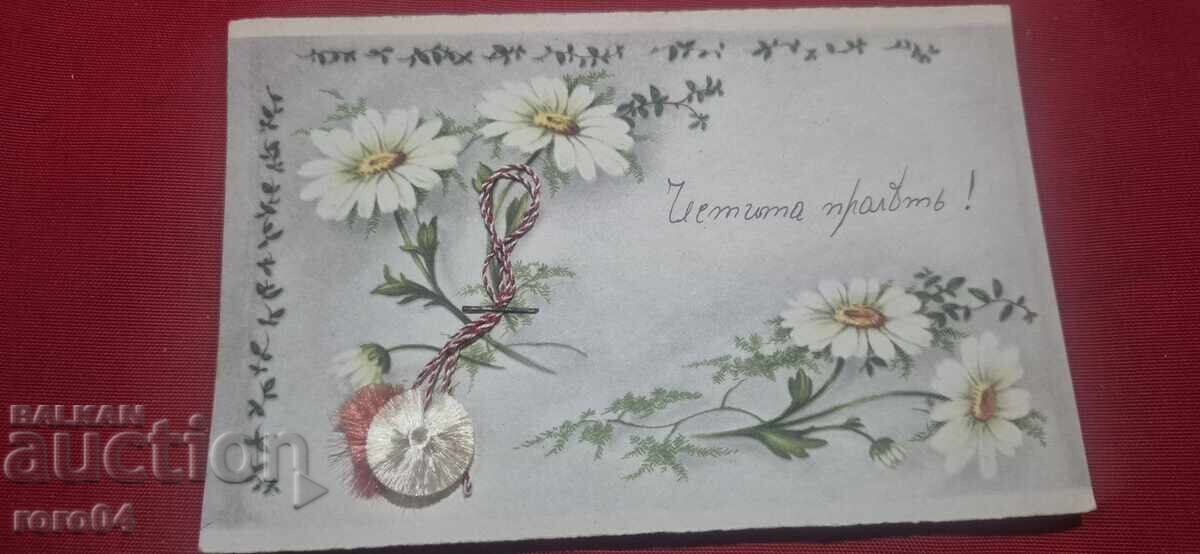 Честита пролѣть!
BALKAN
auction
roro04